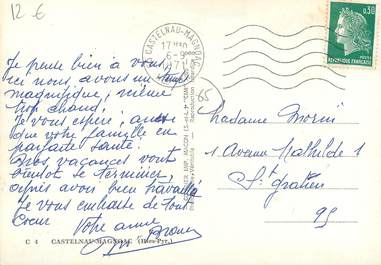 12 €
CASTELNAU-MAGNOAC
17H
6-9
1971
0,30
REPUBLIQUE FRANÇAISE
POSTES
Je pense bien à vous
ici nous avons un temps
magnifique, même
trop chaud,
Je vous espère, ainsi
que votre famille en
parfaite santé.
Nos vacances vont
bientôt se terminer,
après avoir bien travaillé
Je vous embrasse de tout
Coeur
Votre amie
65
Madame Morini
1 Avenue Mathilde 1
St Gratien
95
C 4 CASTELNAU-MAGNOAC (Htes-Pyr.)